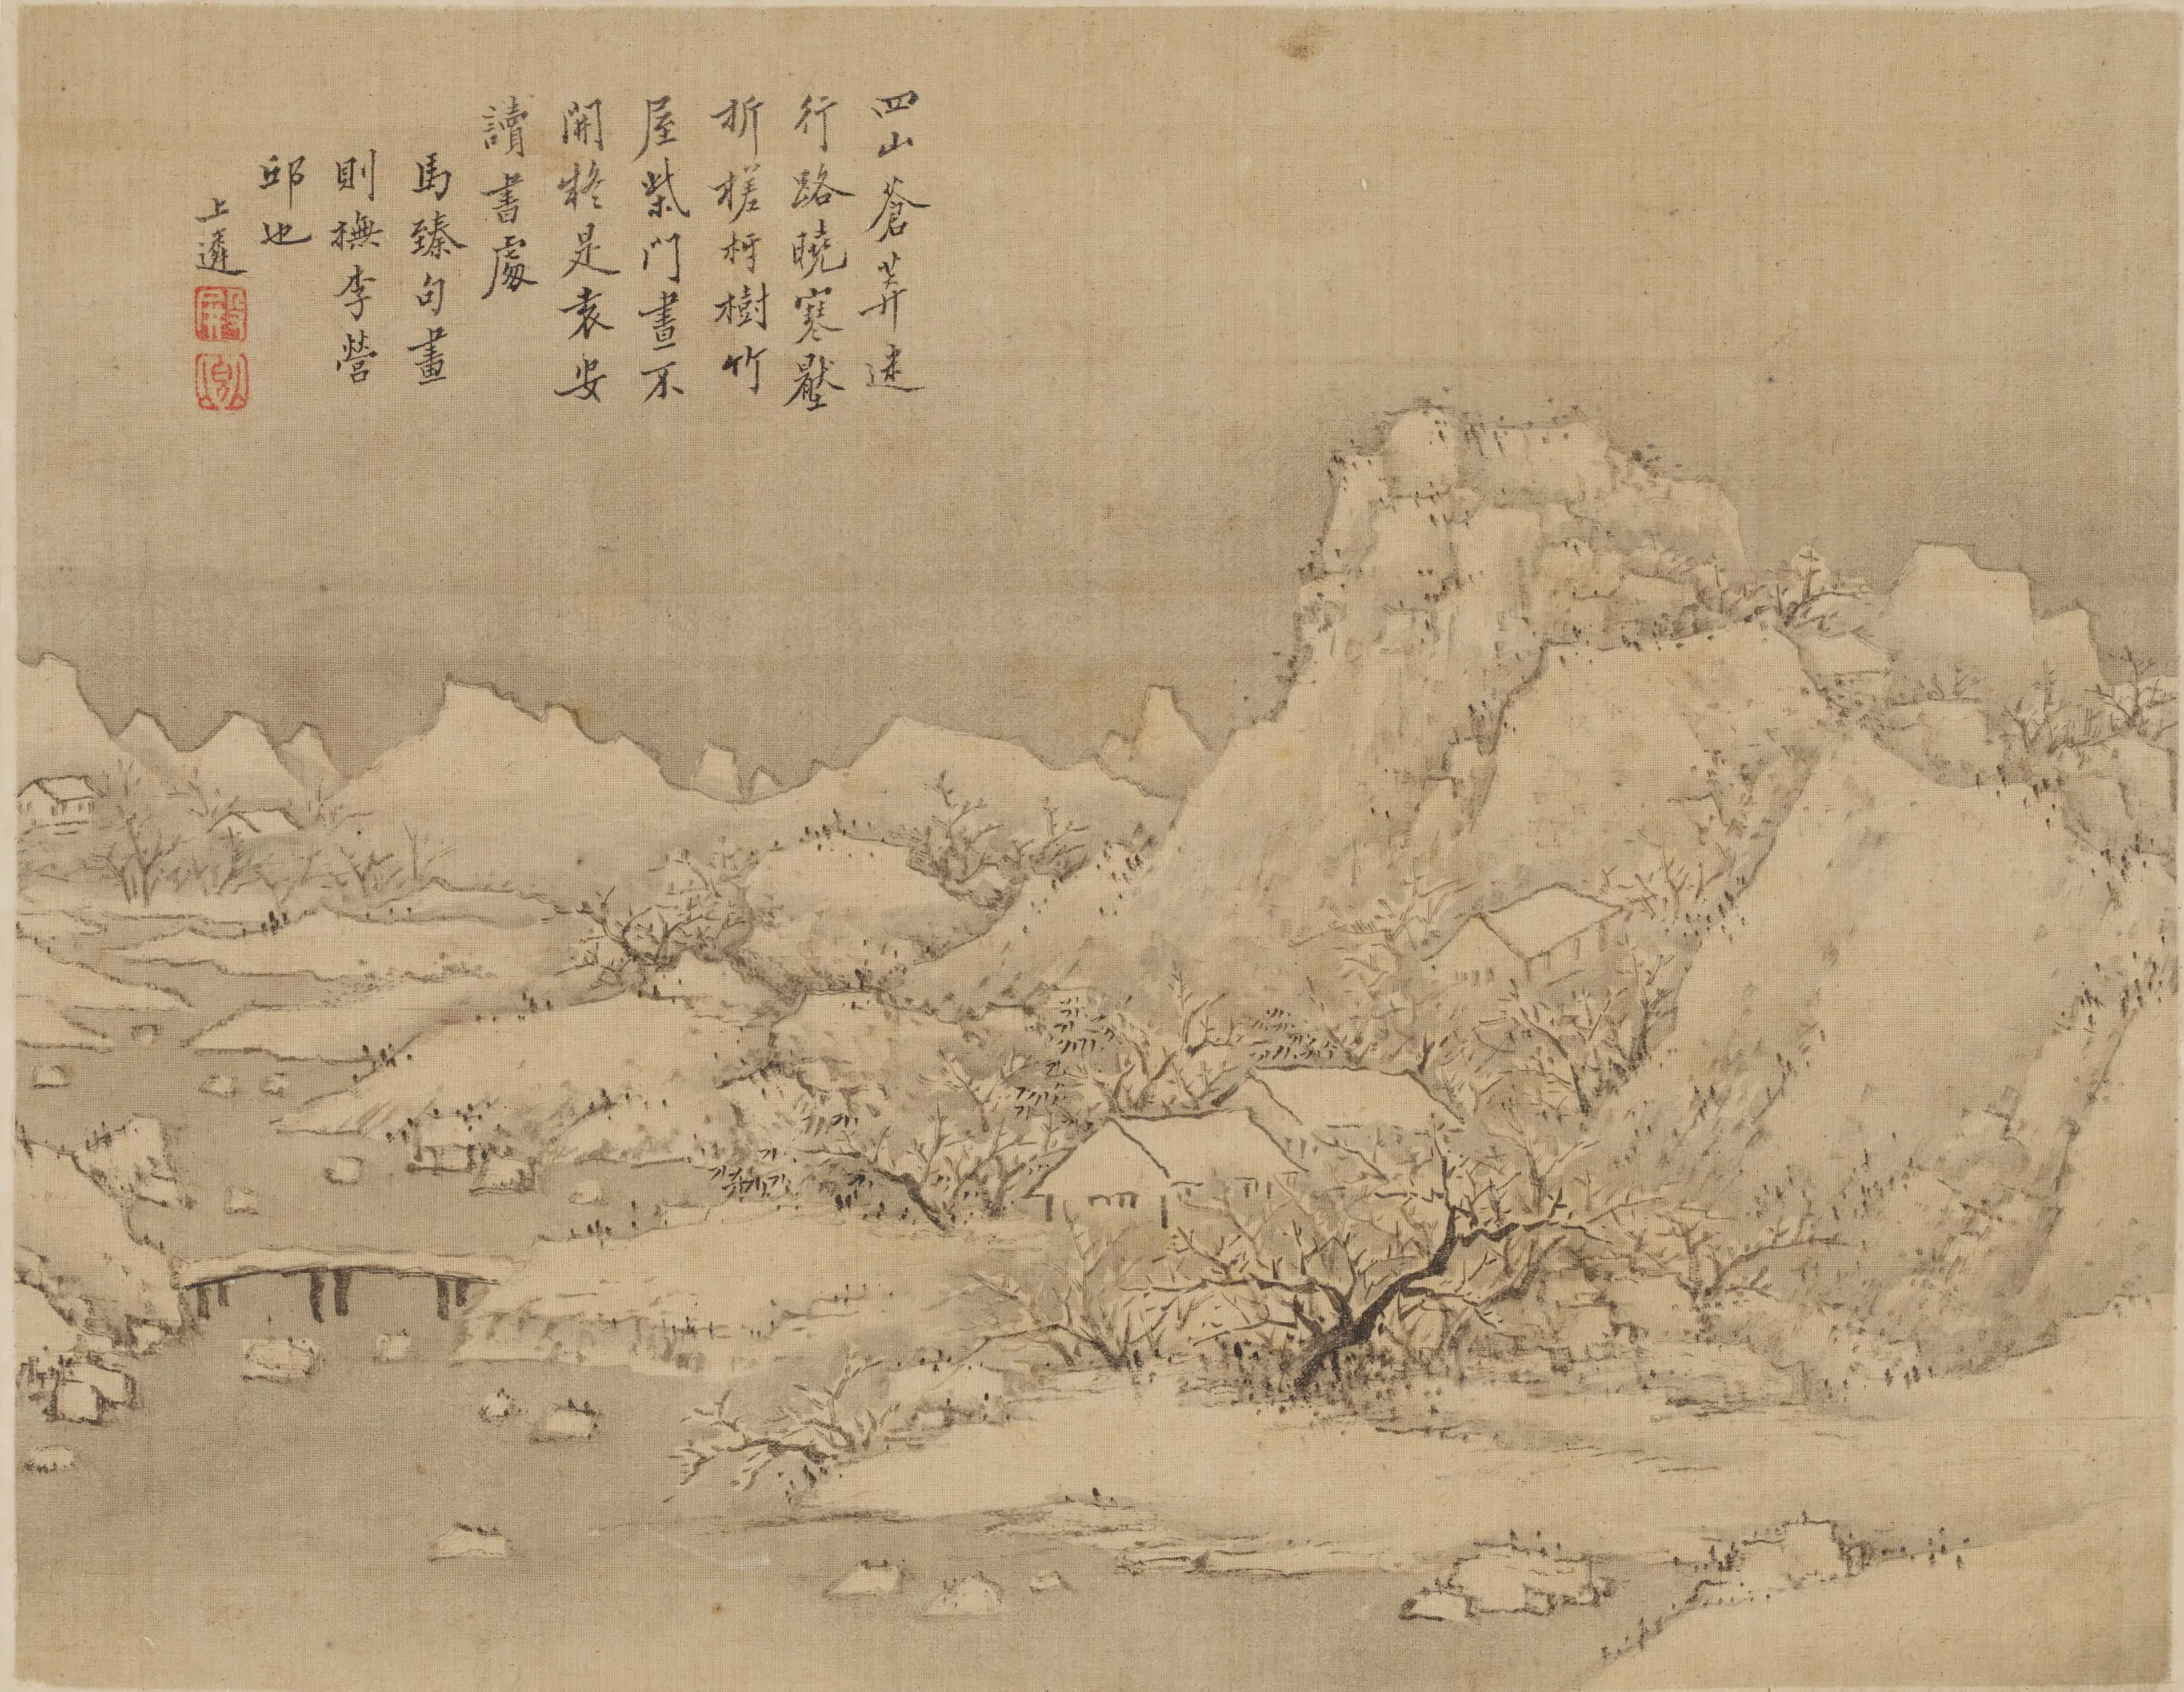 四山蒼莽迷
行路曉寒壓
折槎枒樹竹
屋柴門晝不
開終是袁安
讀書處
馬臻句畫
則橅李營
邱也
上遴